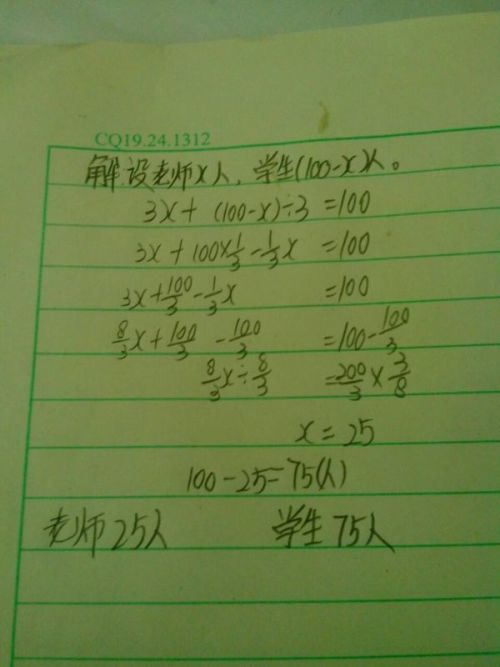 CQ19.24.1312
解:设老师x人,学生(100-x)人。
3x+(100-x)÷3=100
3x+100×1/3-1/3x=100
3x+100/3-1/3x=100
8/3x+100/3-100/3=100-100/3
8/3x÷8/3=200/3×3/8
x=25
100-25=75(人)
老师25人 学生75人